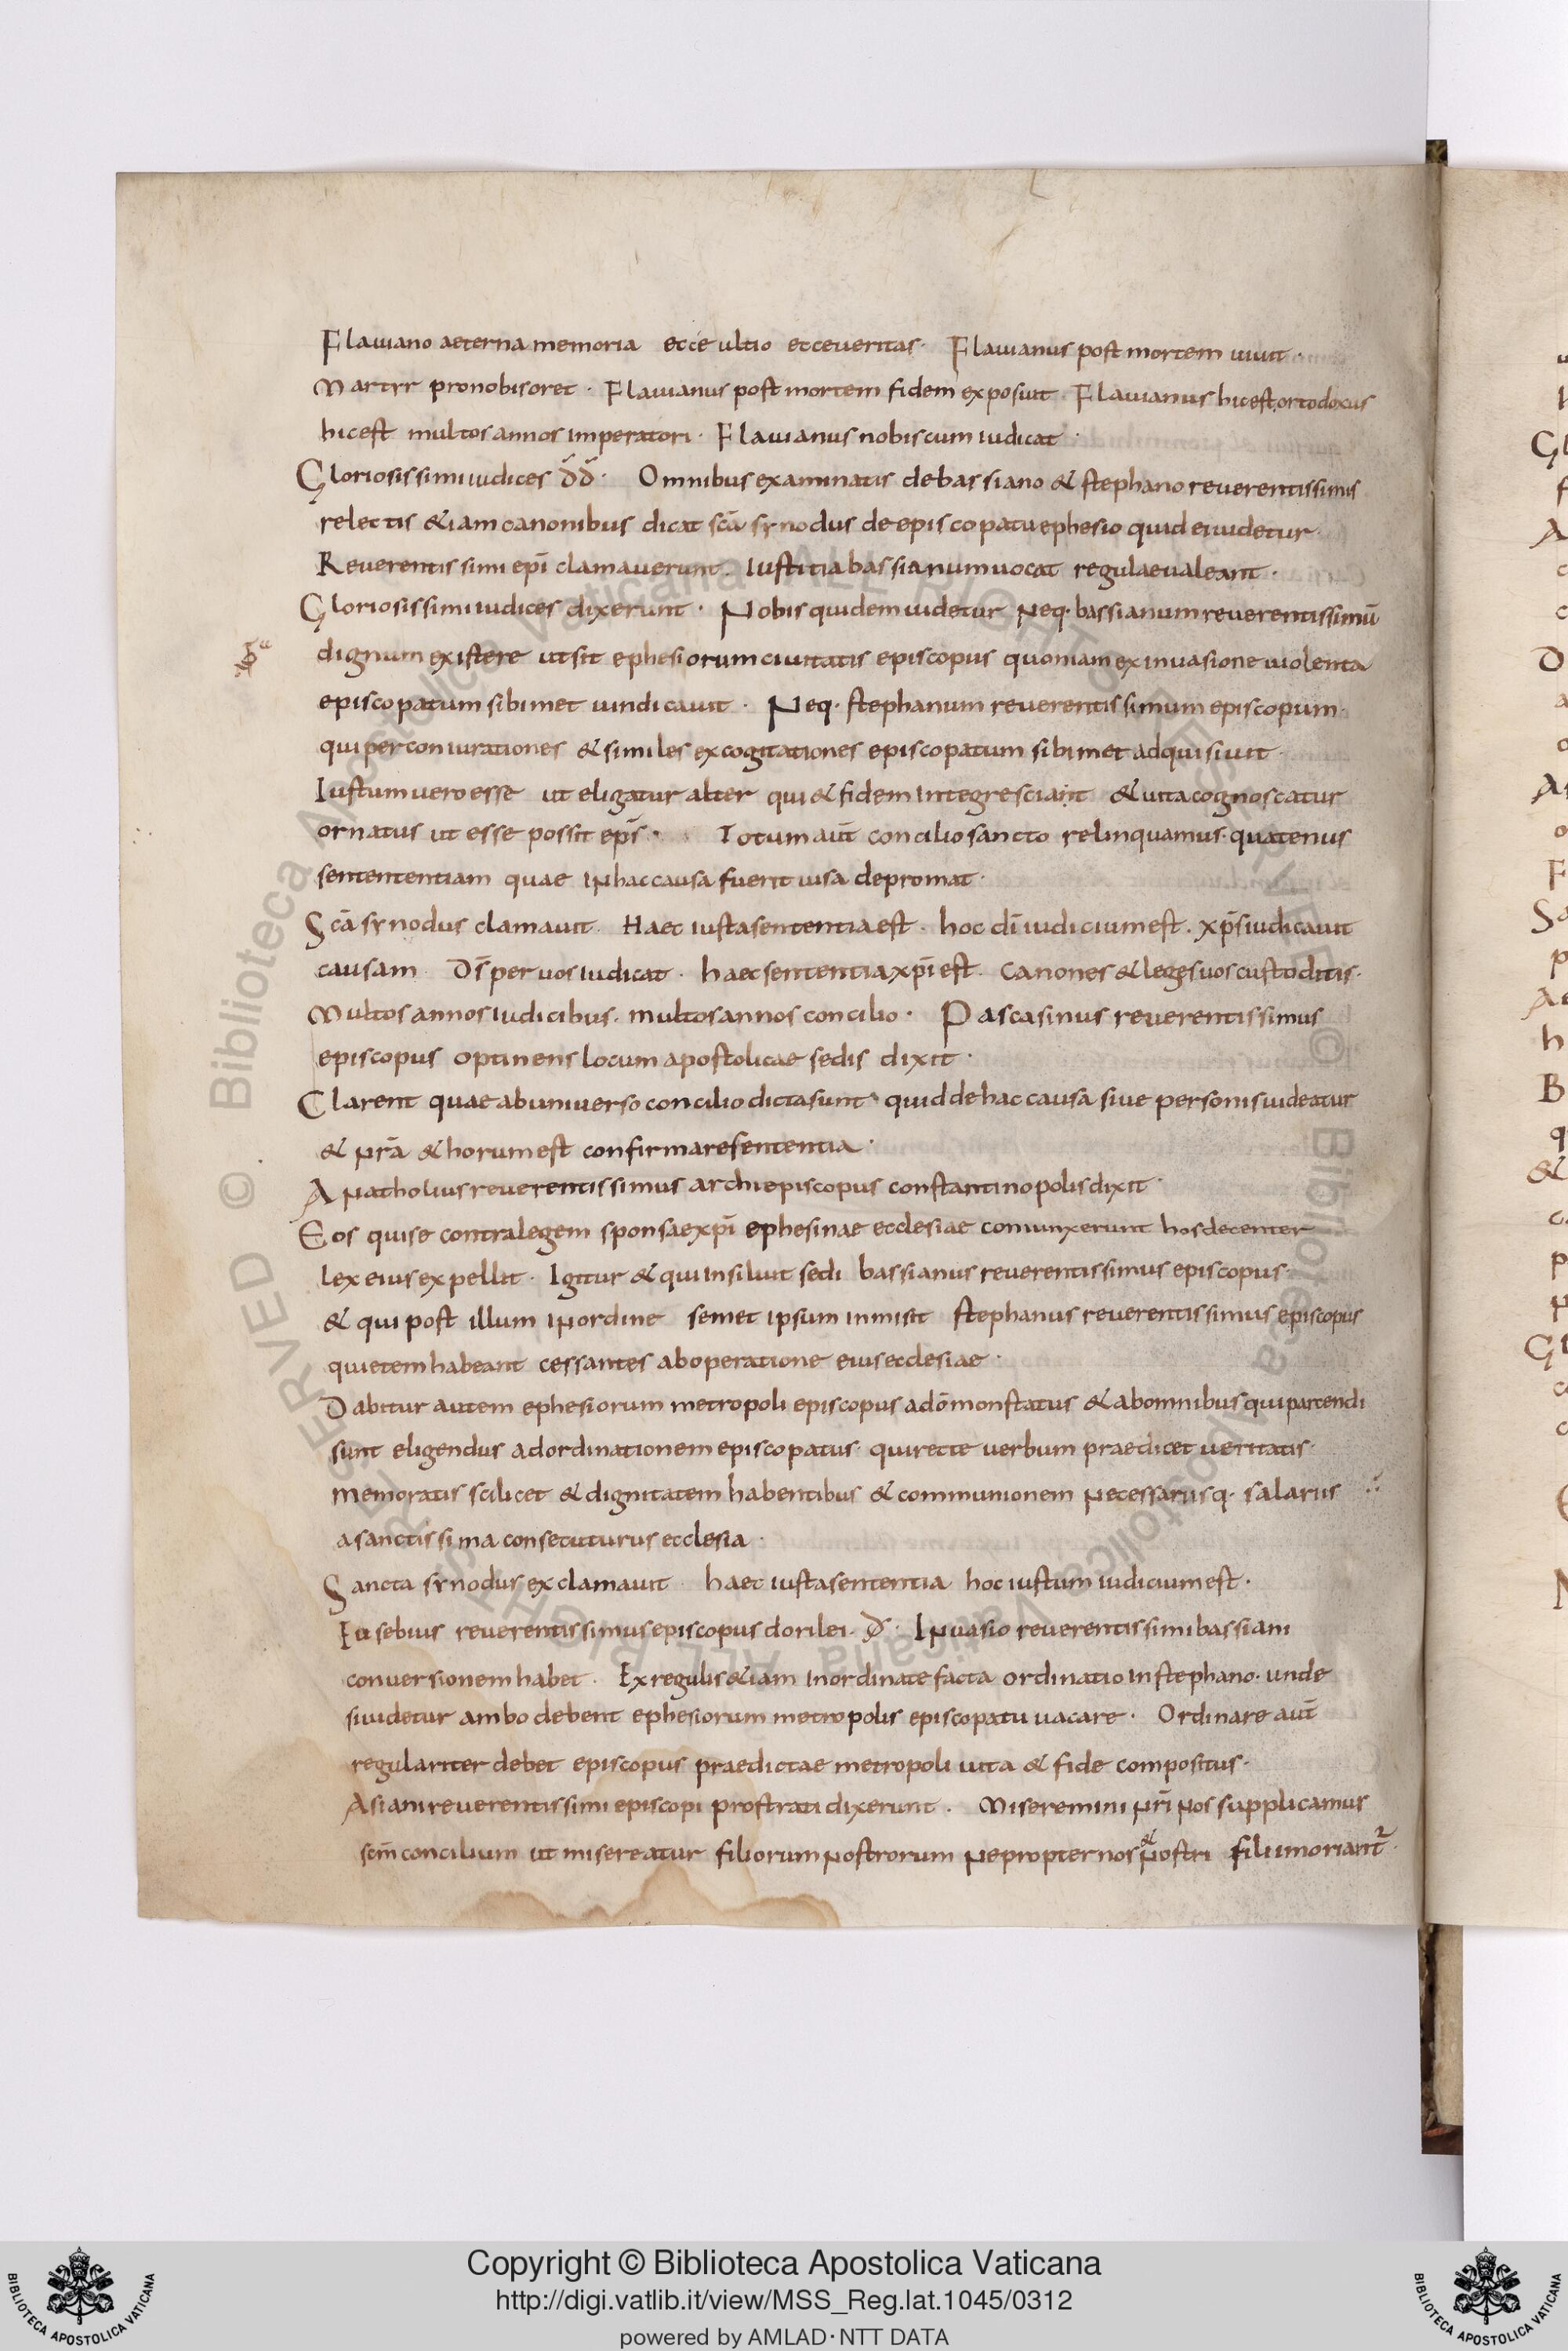 Flauiano aeterna memoria ecce ultio ecceueritas· Flauianus post mortem uiuit·
Martyr pronobisoret· Flauianus post mortem fidem exposuit Flauianus hicest ortodoxus
hicest multos annos imperatori· Flauianus nobiscum iudicat·
Gloriosissimi iudices d̄d̄· Omnibus examinatis debassiano & stephano reuerentissimis
relectis &iam canonibus dicat scā synodus de episcopatu ephesio quid ei uidetur·
Reuerentissimi ep̄i clamauerunt· iustitia bassianum uocat regulae ualeant·
Gloriosissimi iudices dixerunt· Nobis quidem uidetur Neq· bassianum reuerentissimū
dignum existere ut sit ephesiorum ciuitatis episcopus quoniam ex inuasione uiolenta
episcopatum sibimet uindicauit· Neq· stephanum reuerentissimum episcopum·
qui per coniurationes & similes excogitationes episcopatum sibimet adquisiuit·
Iustum uero esse ut eligatur alter qui & fidem integre sciant & uita cognoscatur
ornatus ut esse possit ep̄s· Totum aūt concilio sancto relinquamus· quatenus
sentententiam quae iN hac causa fuerit uisa depromat·
Scā synodus clamauit· Haec iusta sententia est· hoc dī iudicium est· xp̄s iudicauit
causam· Ds̄ per uos iudicat· haec sententia xp̄i est· canones & leges uos custoditis·
Multos annos iudicibus· multos annos concilio· Pascasinus reuerentissimus
episcopus optinens locum apostolicae sedis dixit·
Clarent quae ab uniuerso concilio dicta sunt· quid de hac causa siue personis uideatur
& Nr̄a & horum est confirmare sententia·
ANatholius reuerentissimus archiepiscopus constantinopolis dixit·
Eos qui se contra legem sponsae xp̄i ephesinae ecclesiae coniunxerunt hos decenter
lex eius expellit· Igitur & qui insiluit sedi bassianus reuerentissimus episcopus·
& qui post illum iNordine semet ipsum inmisit stephanus reuerentissimus episcopus
quietem habeant cessantes ab operatione eius ecclesiae·
Dabitur autem ephesiorum metropoli episcopus a dō monstatus & ab omnibus qui parcendi
sunt eligendus ad ordinationem episcopatus· qui recte uerbum praedicet ueritatis·
memoratis scilicet & dignitatem habentibus & communionem Necessariisq· salariis
a sanctissima consecuturus ecclesia·
Sancta synodus exclamauit· haec iusta sententia hoc iustum iudicium est·
Eusebius reuerentissimus episcopus dorilei· d̄· INuasio reuerentissimi bassiani
conuersionem habet· Ex regulis &iam inordinate facta ordinatio in stephano· unde
si uidetur ambo debent ephesiorum metropolis episcopatu uacare· Ordinare aūt
regulariter debet episcopus praedictae metropoli uita & fide compositus·
Asiani reuerentissimi episcopi prostrati dixerunt· Miseremini Nr̄i Nos supplicamus
scm̄ concilium ut misereatur filiorum Nostrorum Ne propter nos & Nostri filii moriant̄·
Copyright © Biblioteca Apostolica Vaticana
http://digi.vatlib.it/view/MSS_Reg.lat.1045/0312
powered by AMLAD·NTT DATA